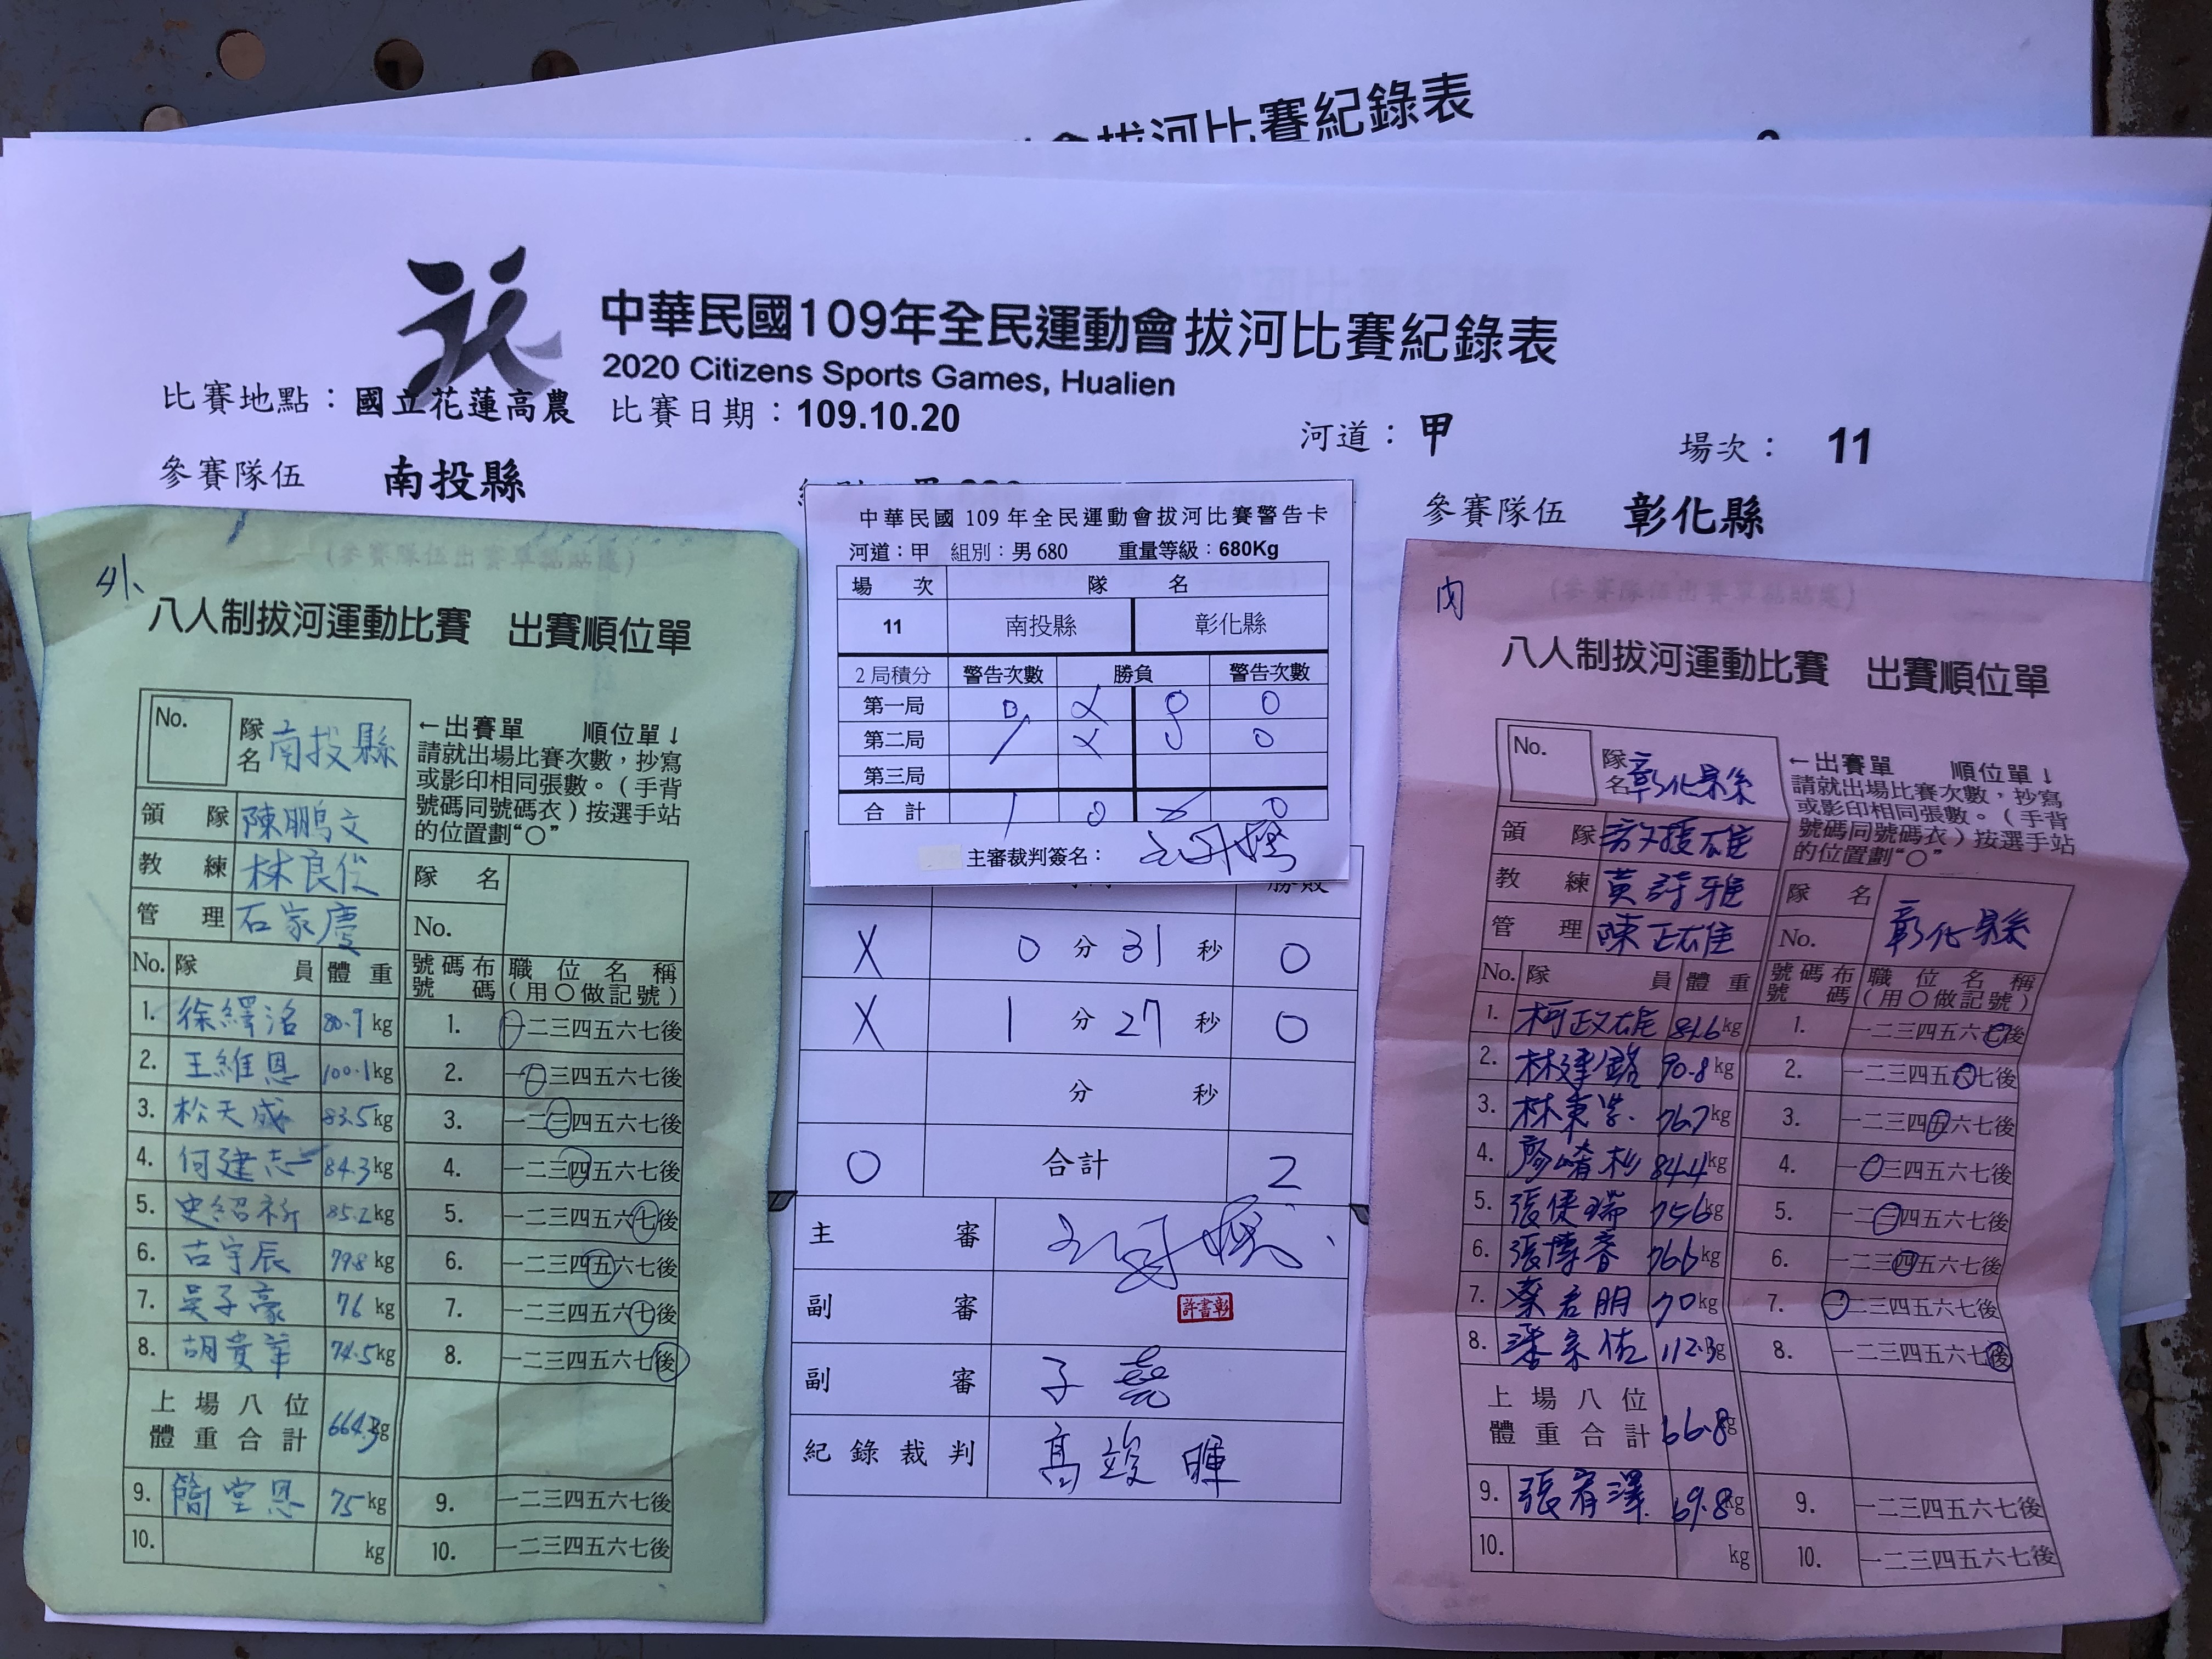 會拔河比賽紀錄表
中華民國109年全民運動會拔河比賽紀錄表
2020 Citizens Sports Games, Hualien
比賽地點：國立花蓮高農 比賽日期：109.10.20 河道：甲 場次： 11
參賽隊伍 南投縣 參賽隊伍 彰化縣
外
(參賽隊伍出賽單黏貼處)
八人制拔河運動比賽 出賽順位單
No. 隊名 南投縣
←出賽單 順位單↓
請就出場比賽次數，抄寫
或影印相同張數。（手背
號碼同號碼衣）按選手站
的位置劃“○”
領隊 陳鵬文
教練 林良俊
管理 石家慶
隊名
No.
No. 隊員 體重 號碼布號碼 職位名稱（用○做記號）
1. 徐繹洺 80.9 kg 1. 一二三四五六七後
2. 王維恩 100.1 kg 2. 一二三四五六七後
3. 松天成 83.5 kg 3. 一二三四五六七後
4. 何建志 84.3 kg 4. 一二三四五六七後
5. 史紹祈 85.2 kg 5. 一二三四五六七後
6. 古宇辰 79.8 kg 6. 一二三四五六七後
7. 吳子豪 76 kg 7. 一二三四五六七後
8. 胡貴華 74.5 kg 8. 一二三四五六七後
上場八位體重合計 664.3 kg
9. 簡堂恩 75 kg 9. 一二三四五六七後
10. kg 10. 一二三四五六七後
中華民國 109 年全民運動會拔河比賽警告卡
河道：甲 組別：男 680 重量等級：680Kg
場次 隊名
11 南投縣 彰化縣
2 局積分 警告次數 勝負 警告次數
第一局 0 X 0 0
第二局 / X 0 0
第三局
合計 1 0 0
主審裁判簽名：
勝敗
X 0 分 31 秒 0
X 1 分 27 秒 0
分 秒
0 合計 2
主審
副審 許書彰
副審
紀錄裁判 高竣暉
內
(參賽隊伍出賽單黏貼處)
八人制拔河運動比賽 出賽順位單
No. 隊名 彰化縣
←出賽單 順位單↓
請就出場比賽次數，抄寫
或影印相同張數。（手背
號碼同號碼衣）按選手站
的位置劃“○”
領隊
教練 黃詩雅
管理 陳正雄
隊名 彰化縣
No.
No. 隊員 體重 號碼布號碼 職位名稱（用○做記號）
1. 柯政雄 81.6 kg 1. 一二三四五六七後
2. 林建銘 90.8 kg 2. 一二三四五六七後
3. 76.7 kg 3. 一二三四五六七後
4. 84.4 kg 4. 一二三四五六七後
5. 75.6 kg 5. 一二三四五六七後
6. kg 6. 一二三四五六七後
7. 蔡君朋 70 kg 7. 一二三四五六七後
8. 潘宗佑 112.3 kg 8. 一二三四五六七後
上場八位體重合計 kg
9. 張宥澤 69.8 kg 9. 一二三四五六七後
10. kg 10. 一二三四五六七後